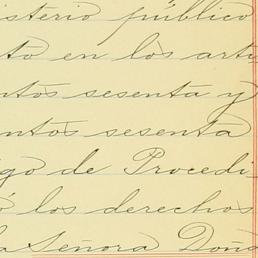 isterio público
to en los artí
ntos sesenta y
ntos sesenta
igo de Procedi
ó los derechos
la Señora Doña